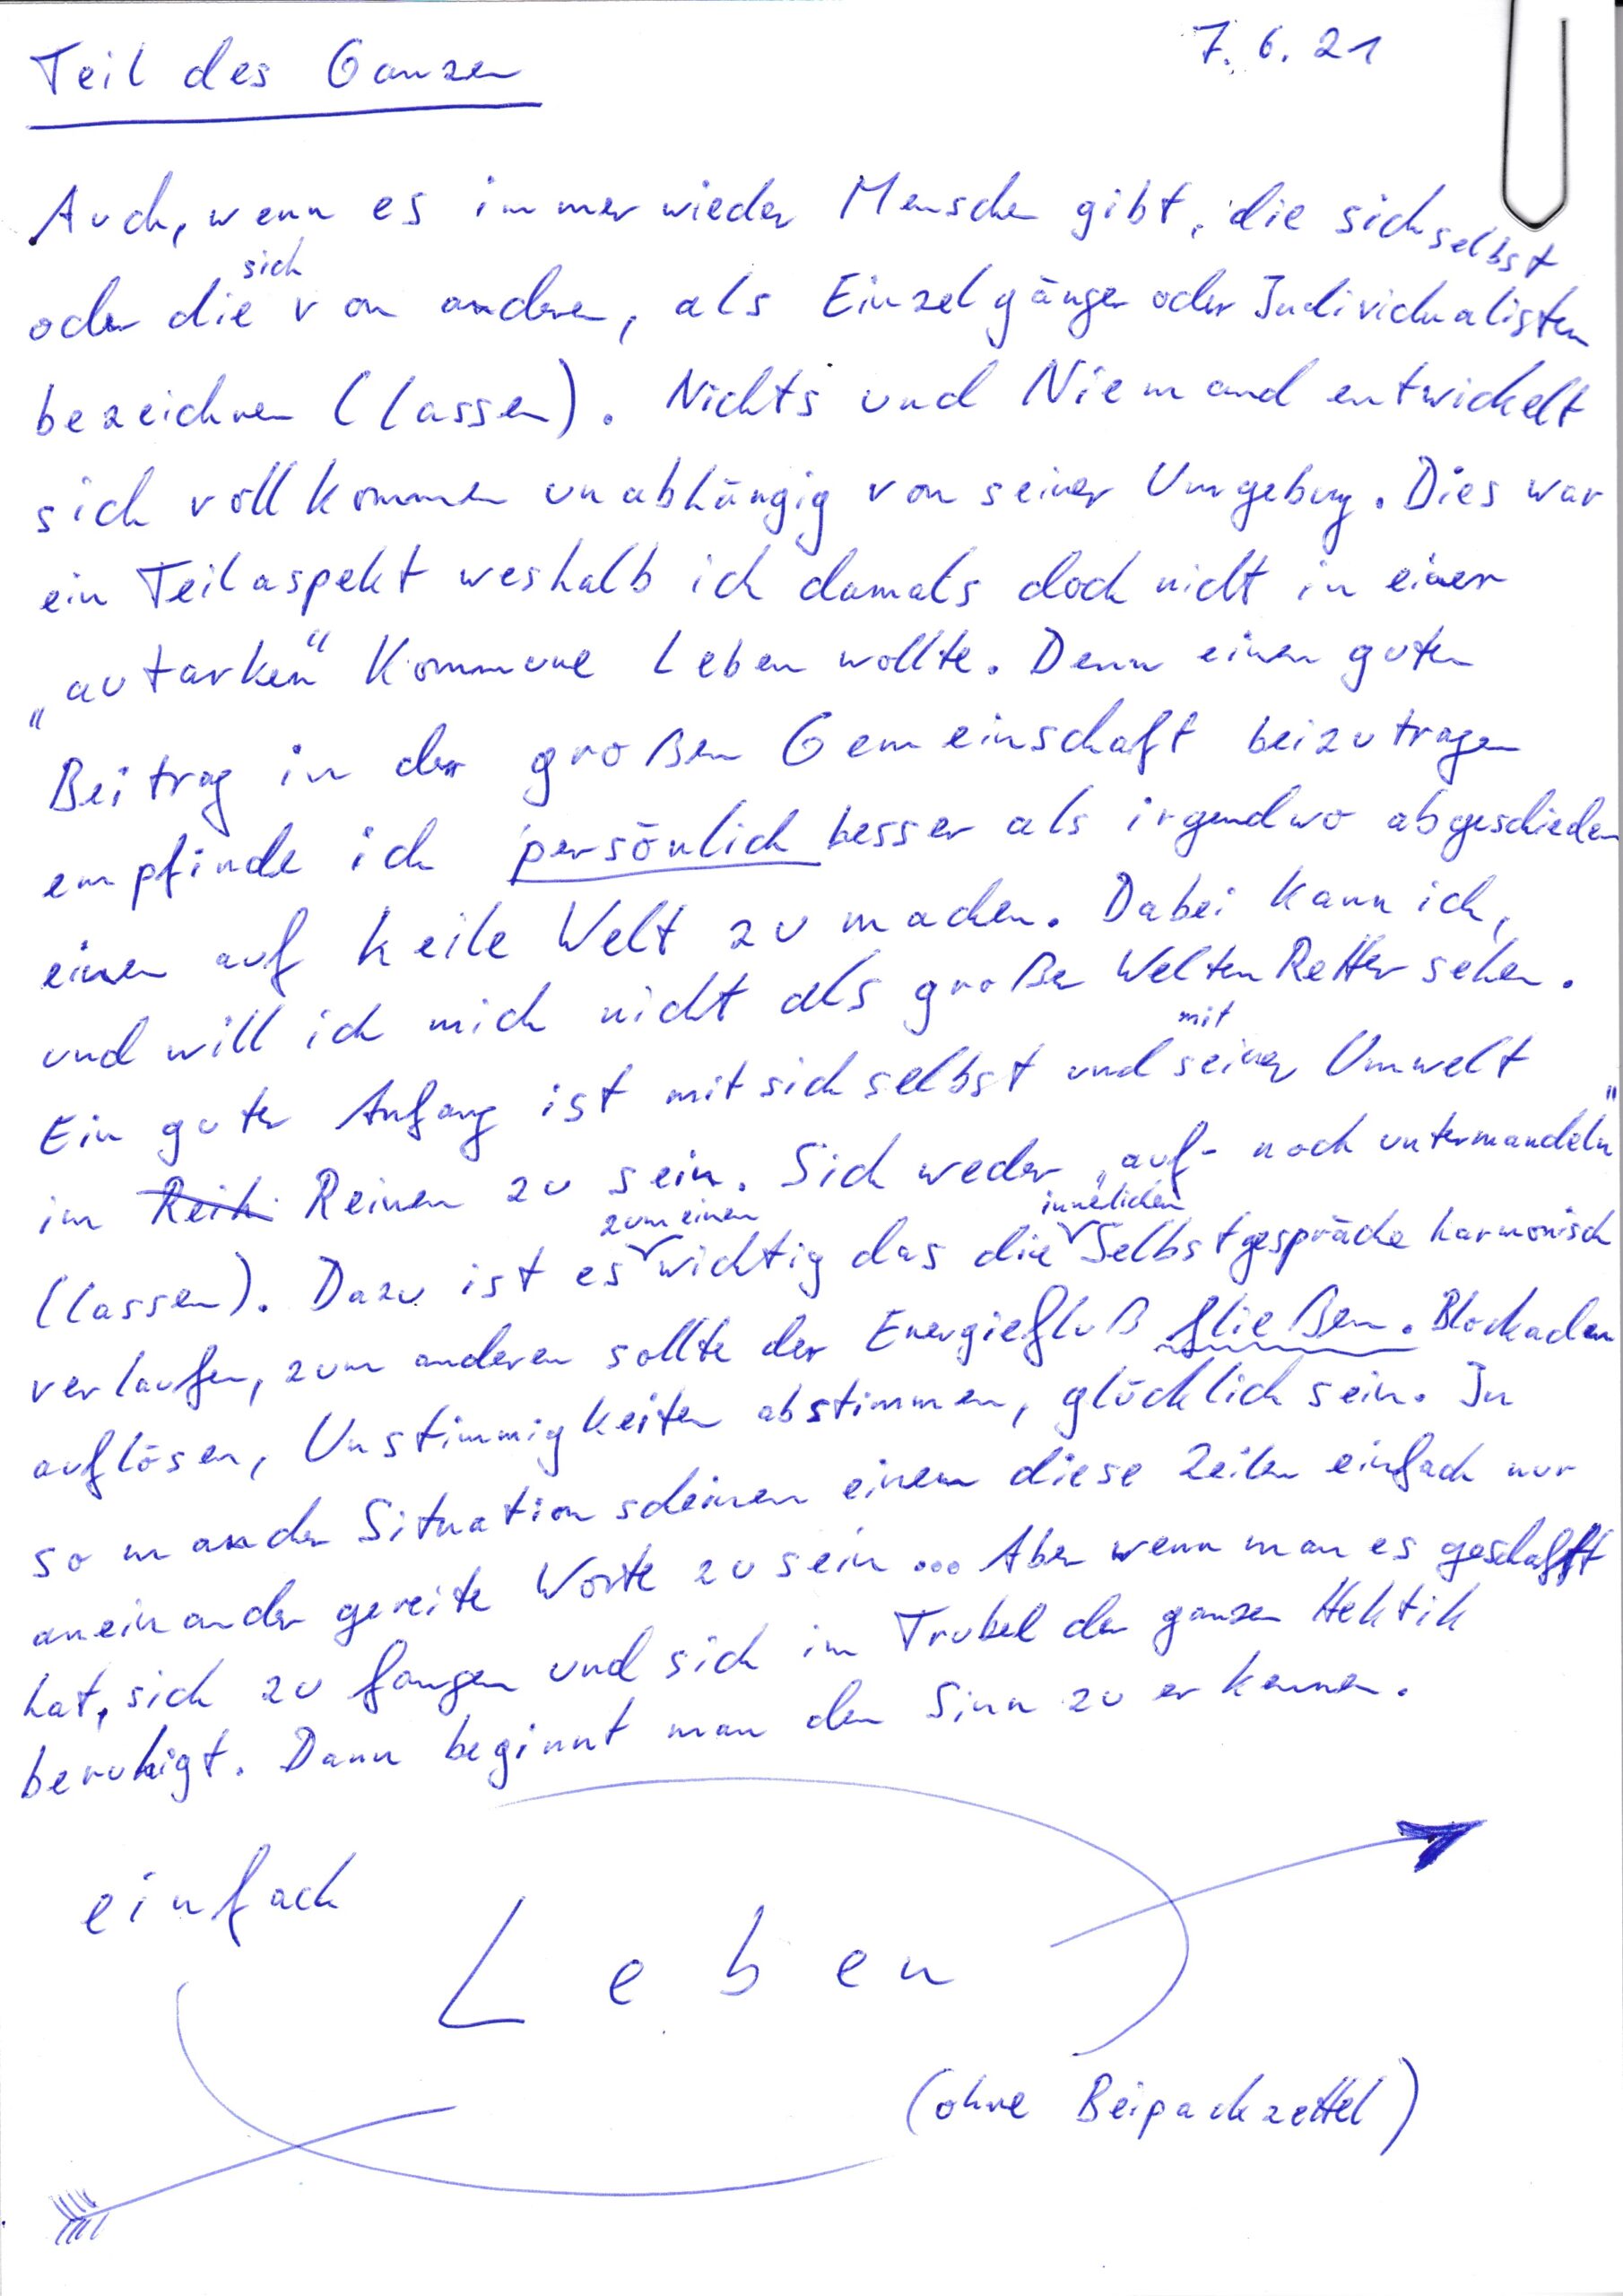 Teil des Ganzen
7.6.21
Auch, wenn es immer wieder Menschen gibt, die sich selbst
oder die sich von anderen, als Einzelgänger oder Individualisten
bezeichnen (lassen). Nichts und Niemand entwickelt
sich vollkommen unabhängig von seiner Umgebung. Dies war
ein Teilaspekt weshalb ich damals doch nicht in einer
„autarken“ Kommune Leben wollte. Denn einen guten
Beitrag in der großen Gemeinschaft beizutragen
empfinde ich persönlich besser als irgendwo abgeschieden
einen auf heile Welt zu machen. Dabei kann ich,
und will ich mich nicht als großer Welten Retter sehen.
Ein guter Anfang ist mit sich selbst und mit seiner Umwelt
im Reih Reinen zu sein. Sich weder „auf- noch untermandeln“
(lassen). Dazu ist es zum einen wichtig das die innerlichen Selbstgespräche harmonisch
verlaufen, zum anderen sollte der Energiefluß fließen. Blockaden
auflösen, Unstimmigkeiten abstimmen, glücklich sein. In
so mancher Situation scheinen einem diese Zeilen einfach nur
aneinander gereite Worte zu sein ... Aber wenn man es geschafft
hat, sich zu fangen und sich im Trubel der ganzen Hektik
beruhigt. Dann beginnt man den Sinn zu erkennen.
einfach
Leben
(ohne Beipackzettel)